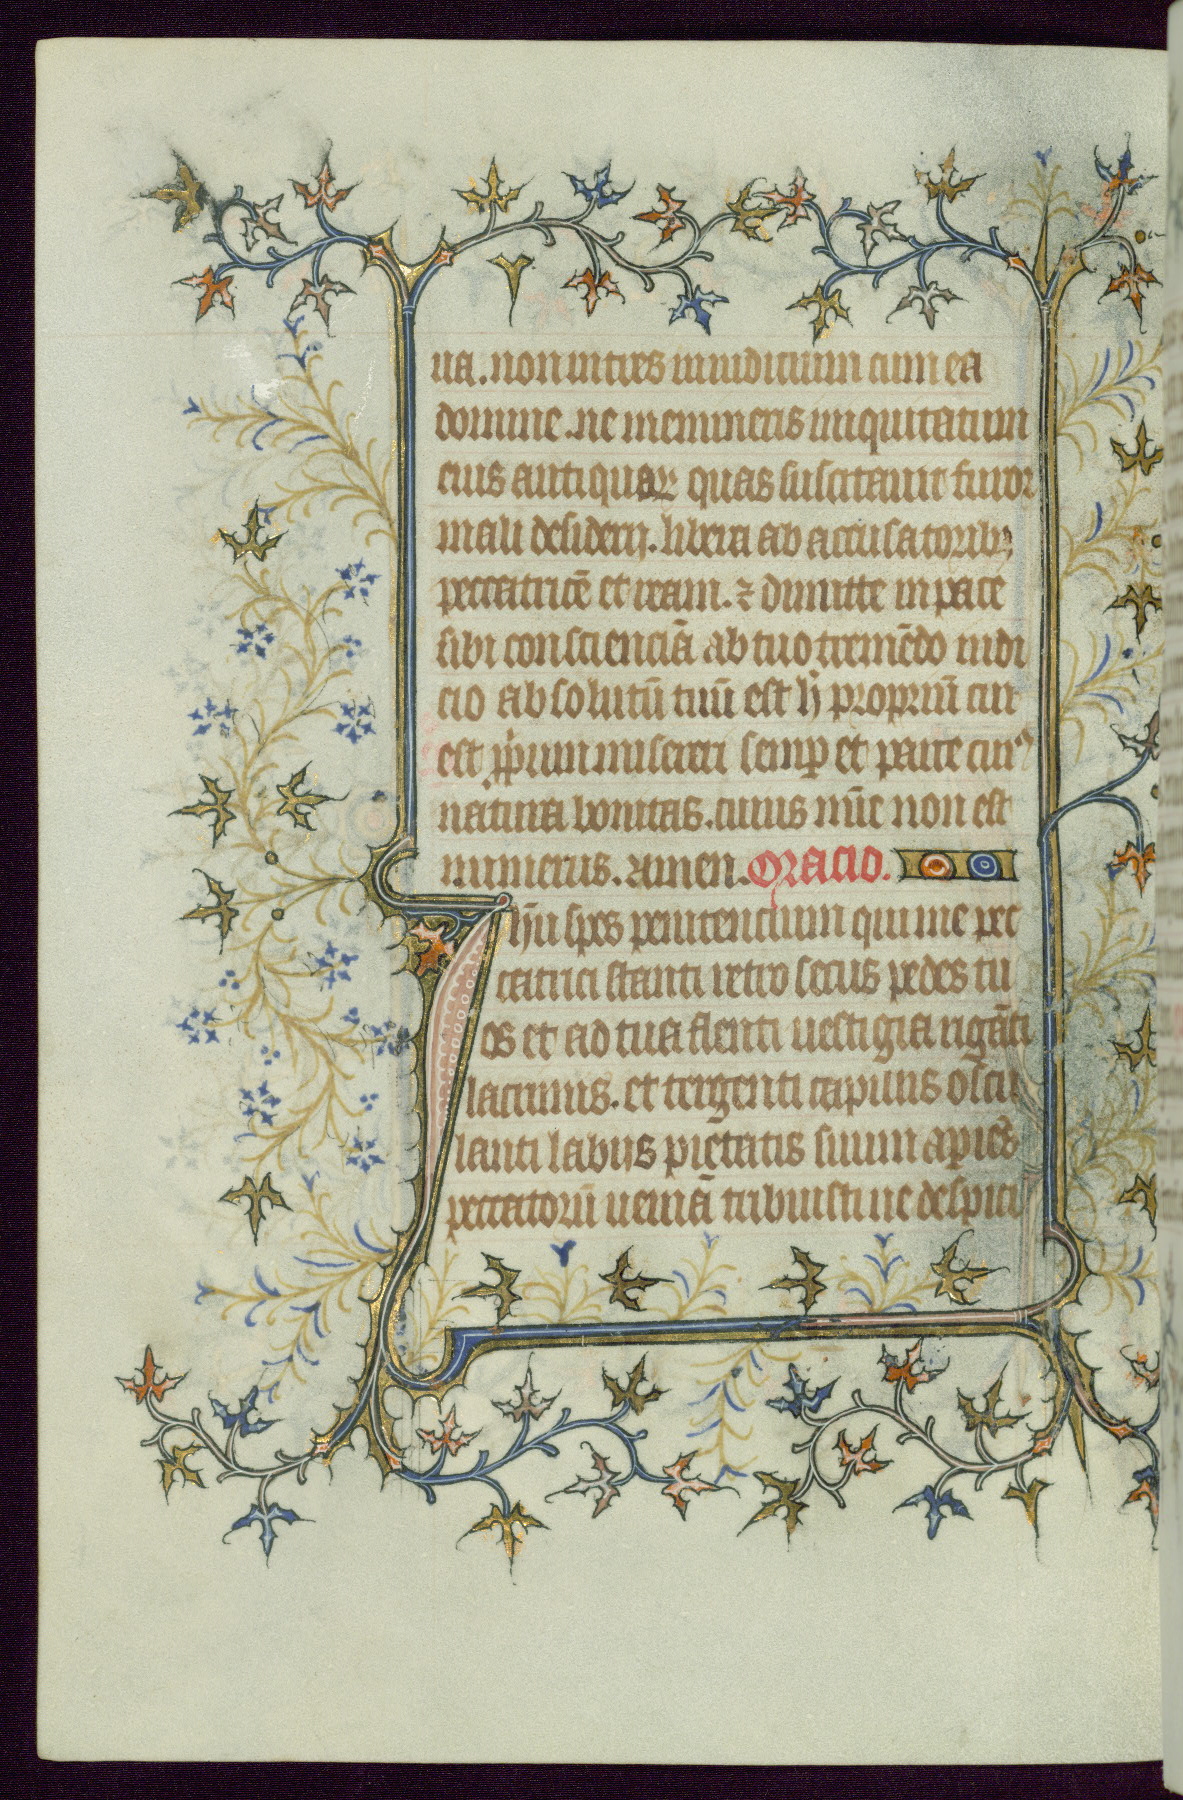 ua. non intres in iudicium cum ea
domine. ne memineris iniquitatum
eius antiquaꝝ quas suscitauit furor
mali desiderij. libera ab accusatoribꝫ
peccatricē et ream. ⁊ dimitte in pace
sibi consciencia͂ ab tuo tremēdo iudi
cio absolutū tuū est h̄ propriū cui
est ꝓprium misereri semꝑ et parcere cuiꝰ
natura bonitas. cuius mīe non est
numerus. amen. Oracio.
Ihū spes penitencium qui me pec
catrici stanti retro secus pedes tu
os et ad tua flenti uestigia rigāti
lacrimis. et tergenti capillis oscu
lanti labijs pietatis suum apiēs
peccatorū ueniā tribuisti ne despici